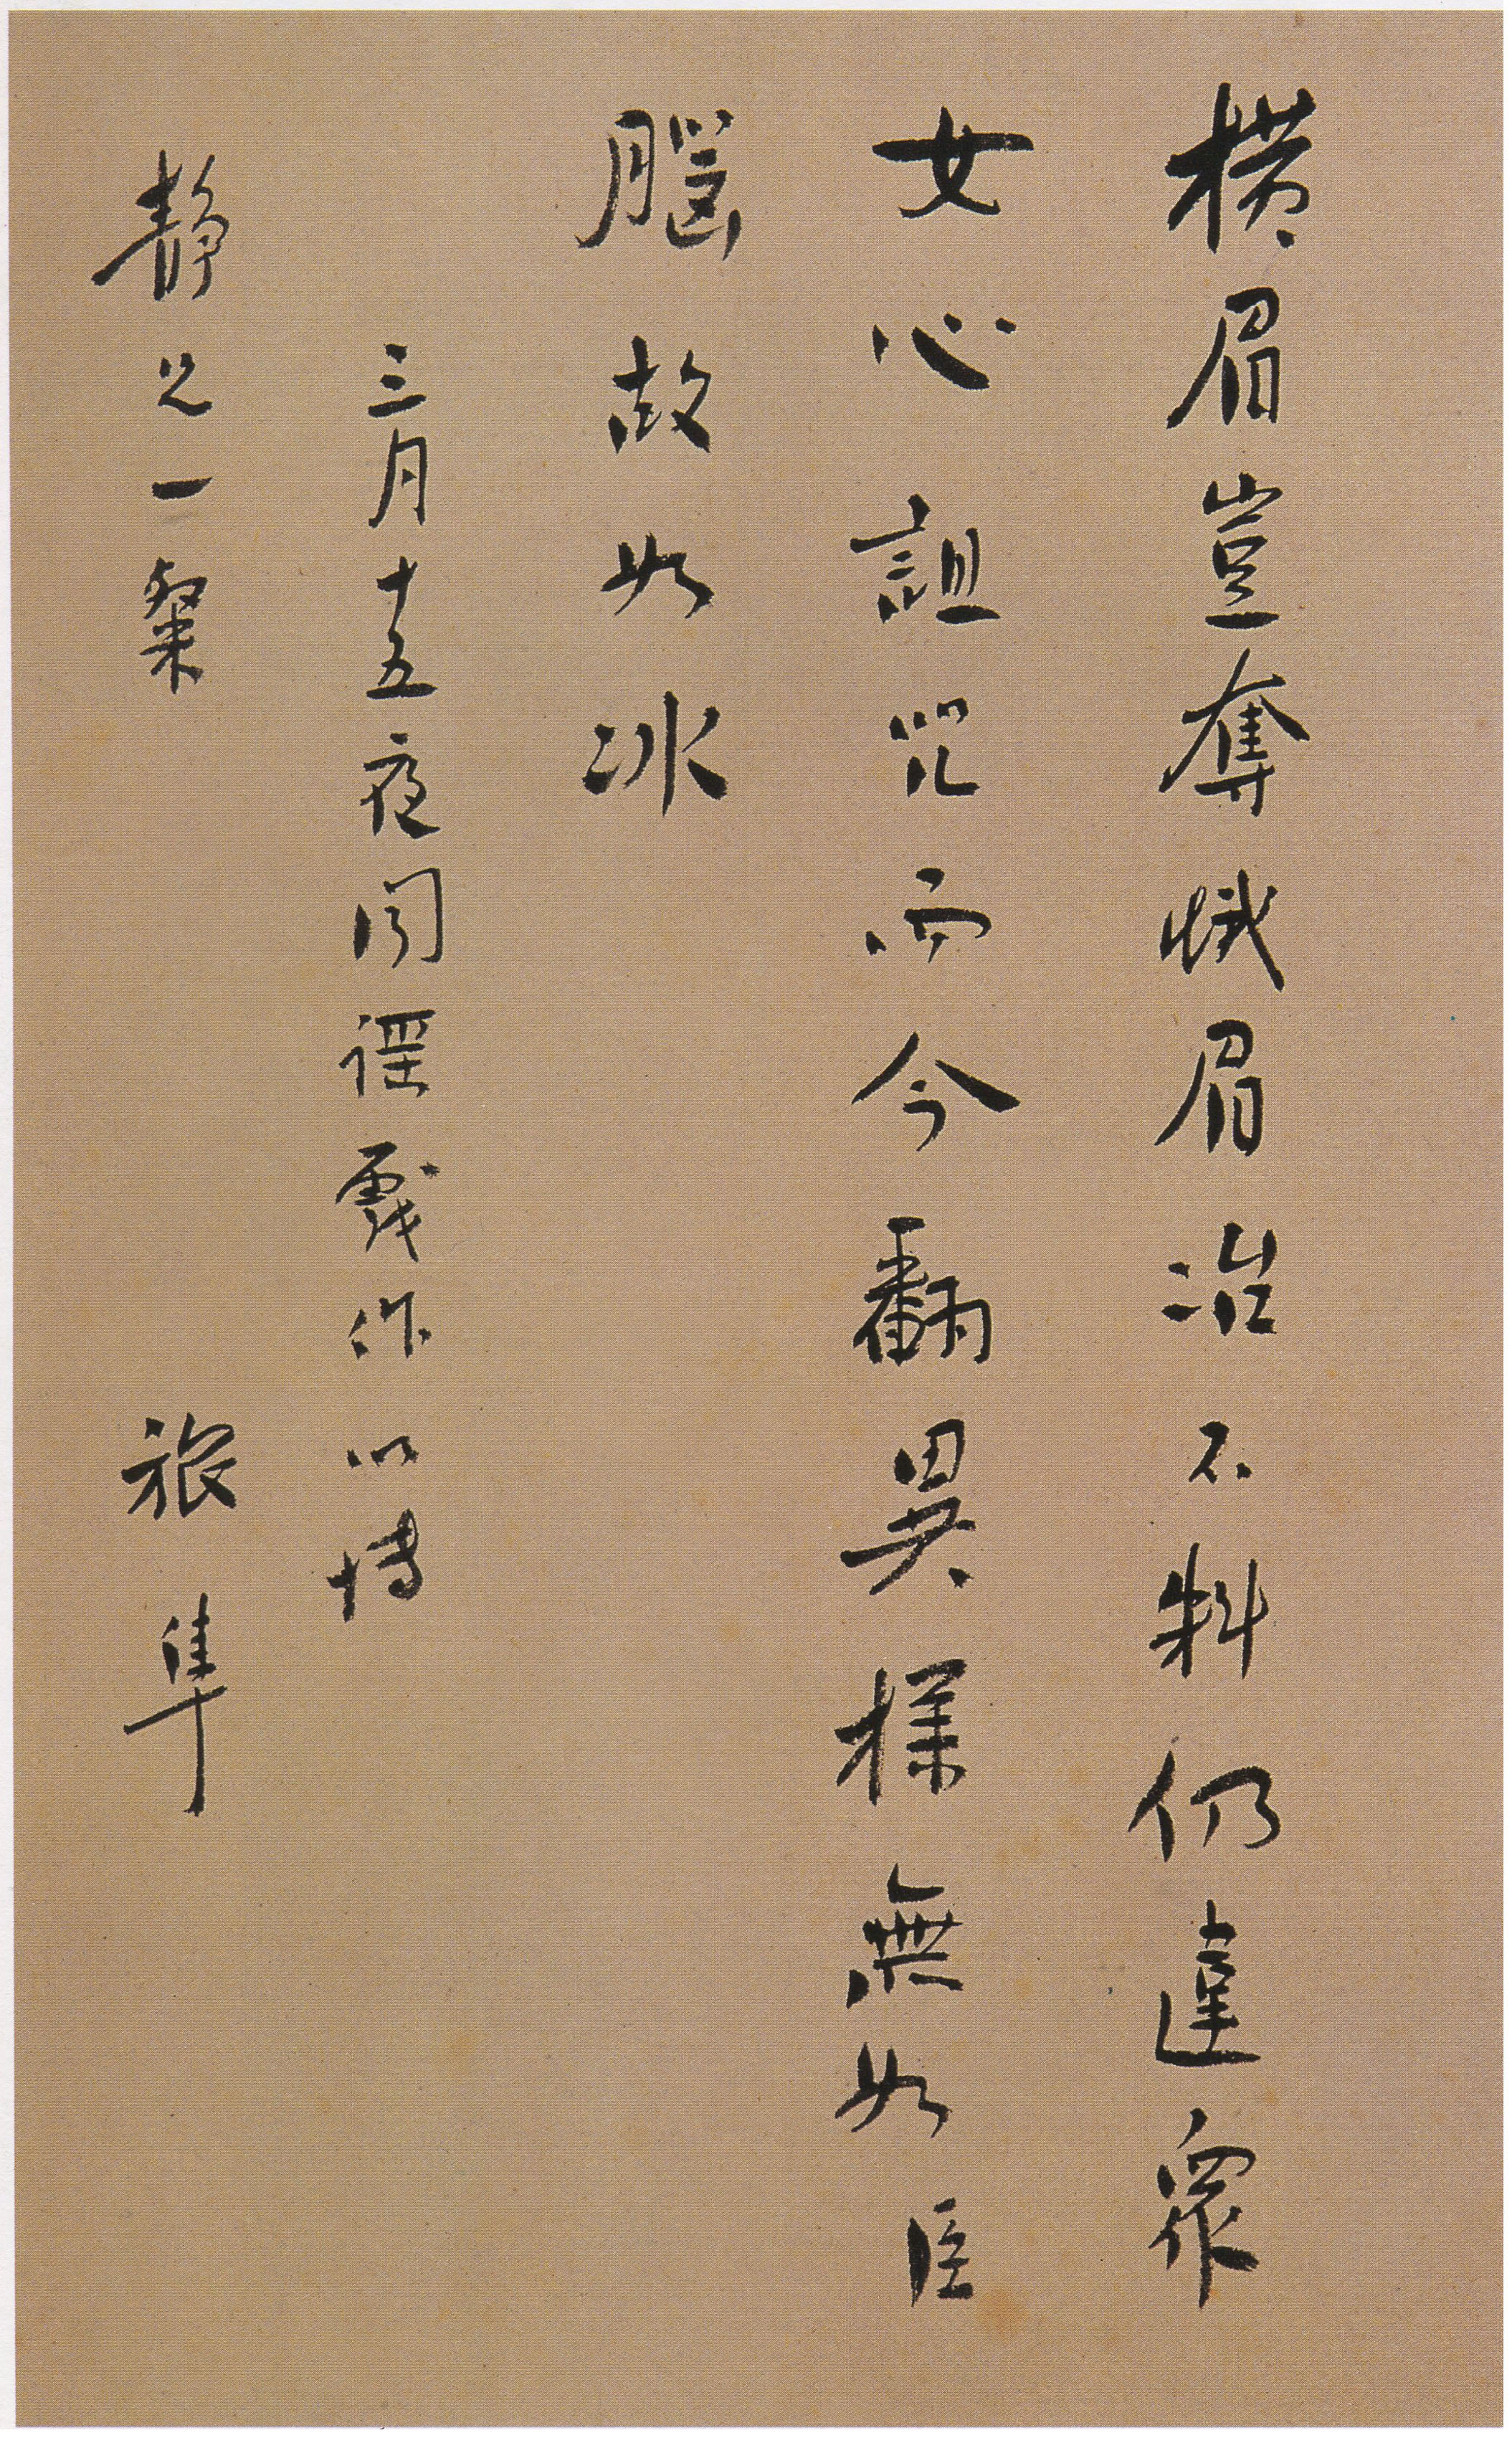 橫眉豈奪蛾眉冶不料仍違眾
女心詛咒而今翻異樣無如臣
腦故如冰
三月十五夜聞謡戲作以博
静兄一粲
旅隼